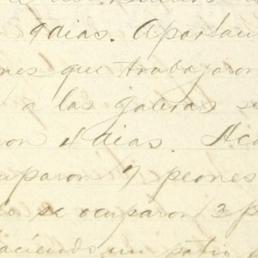 9 dias. Apartan
nes que trabajaron
a las galeras se
on 4 dias. Aca
uparon 7 peones
se ocuparon 3 p
aciendo un patio